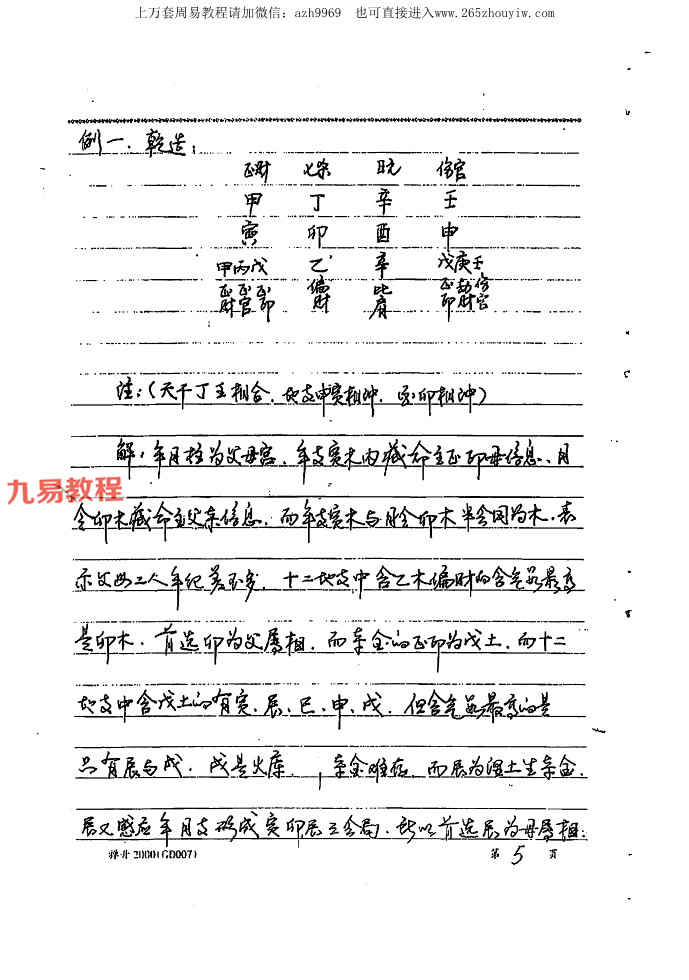 上万套周易教程请加微信：azh9969 也可直接进入www.265zhouyiw.com
例一、乾造：
正财 七杀 日元 伤官
甲 丁 辛 壬
寅 卯 酉 申
甲丙戊 乙 辛 戊庚壬
正正正 偏 比 正劫伤
财官印 财 肩 印财官
注：(天干丁壬相合，地支申寅相冲，酉卯相冲)
解：年月柱为父母宫，年支寅木内藏命主正印母信息，月
九易教程
令卯木藏命主父亲信息，而年支寅木与月令卯木半会同为木，表
示父母二人年纪差不多，十二地支中含乙木偏财的含气最高
是卯木，首选卯为父属相，而辛金的正印为戊土，而十二
地支中含戊土的有寅、辰、巳、申、戌，但含气最高的是
只有辰与戌，戌是火库，辛金难在，而辰为湿土生辛金，
辰又感应年月支形成寅卯辰三会局，所以首选辰为母属相；
2000(GD007)
第 5 页